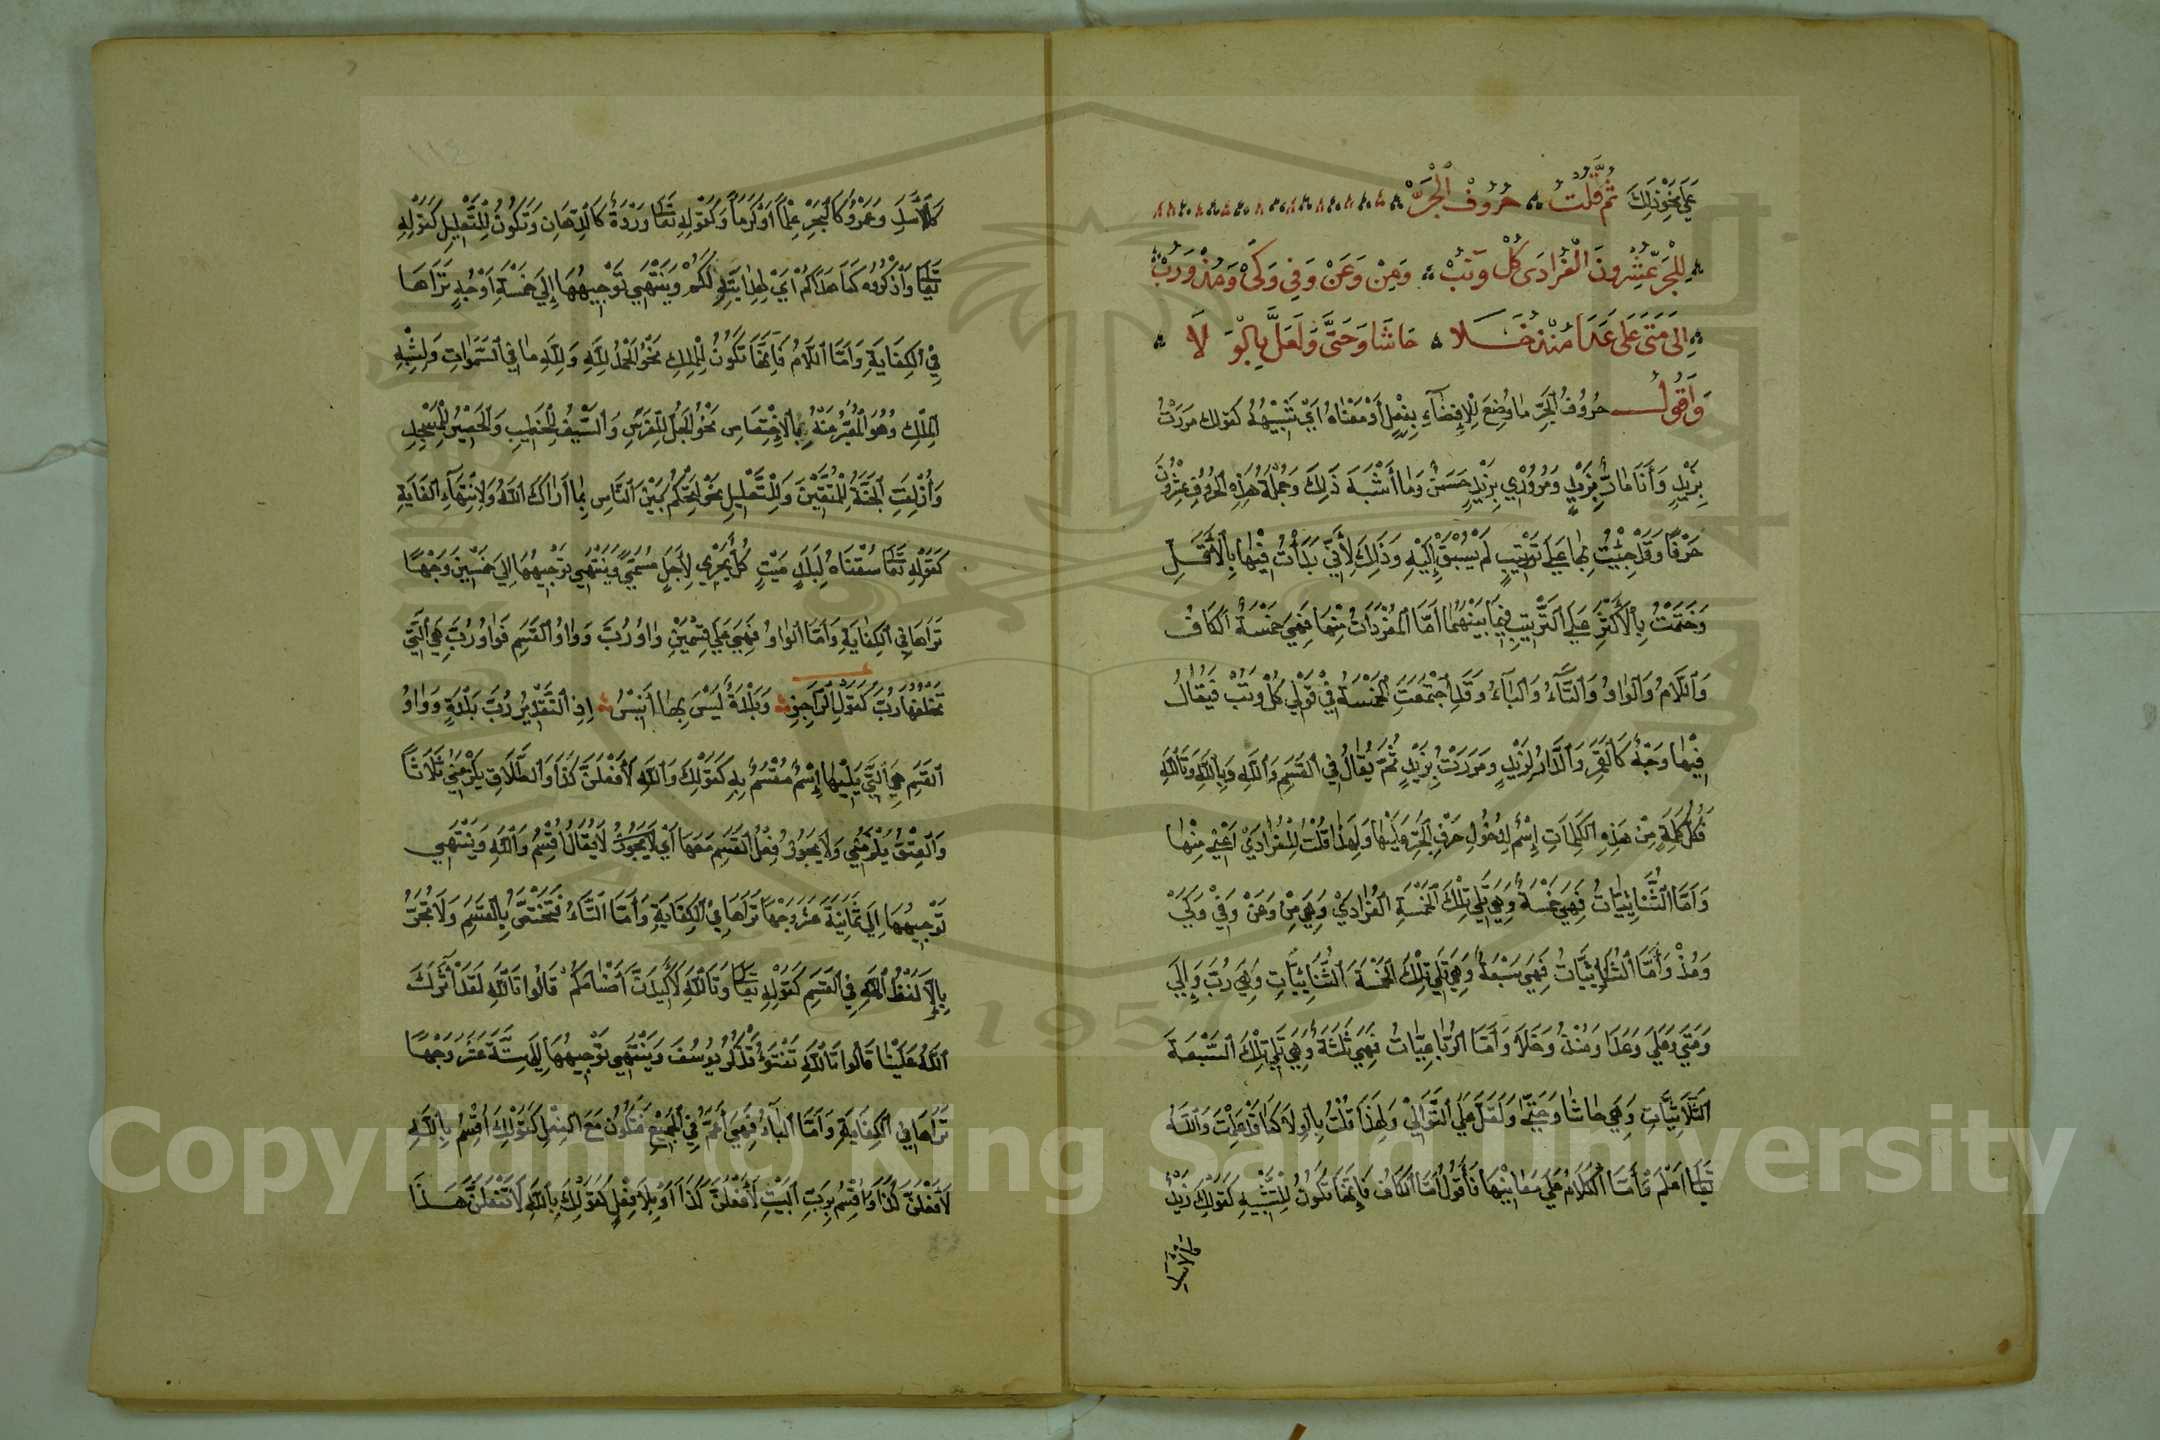 عَلَى نَحْوِ ذَلِكَ ثُمَّ قُلْتُ حُرُوفُ الْجَرِّ
لِلْجَرِّ عِشْرُونَ الْفُرَادَى كُلْ وَتَبْ وَمِنْ وَعَنْ وَفِي وَكَيْ وَمُذْ وَرُبْ
إِلَى مَتَى عَلَى عَدَا مُنْذُ خَلَا حَاشَا وَحَتَّى وَلَعَلَّ بِالْوَلَا
وَأَقُولُ حُرُوفُ الْجَرِّ مَا وُضِعَ لِلْإِفْضَاءِ بِفِعْلٍ أَوْ مَعْنَاهُ أَيْ شَبِيهُهُ كَقَوْلِكَ مَرَرْتُ
بِزَيْدٍ وَأَنَا مَارٌّ بِزَيْدٍ وَمُرُورِي بِزَيْدٍ حَسَنٌ وَمَا أَشْبَهَ ذَلِكَ وَجُمْلَةُ هَذِهِ الْحُرُوفِ عِشْرُونَ
حَرْفًا وَقَدْ جِئْتُ بِهَا عَلَى تَرْتِيبٍ لَمْ يُسْبَقْ إِلَيْهِ وَذَلِكَ لِأَنِّي بَدَأْتُ فِيهَا بِالْأَقَلِّ
وَخَتَمْتُ بِالْأَكْثَرِ عَلَى التَّرْتِيبِ فِيمَا بَيْنَهُمَا أَمَّا الْمُفْرَدَاتُ مِنْهَا فَهِيَ خَمْسَةٌ الْكَافُ
وَاللَّامُ وَالْوَاوُ وَالتَّاءُ وَالْبَاءُ وَقَدِ اجْتَمَعَتِ الْخَمْسَةُ فِي قَوْلِي كُلْ وَتَبْ فَيُقَالُ
فِيهَا وَجْهٌ كَالْقَمَرِ وَالدَّارُ لِزَيْدٍ وَمَرَرْتُ بِزَيْدٍ ثُمَّ يُقَالُ فِي الْقَسَمِ وَاللَّهِ وَبِاللَّهِ وَتَاللَّهِ
فَكُلُّ كَلِمَةٍ مِنْ هَذِهِ الْكَلِمَاتِ اِسْمٌ لِدُخُولِ حَرْفِ الْجَرِّ عَلَيْهَا وَلِهَذَا قُلْتُ الْفُرَادَى أَعْنِي مِنْهَا
وَأَمَّا الثُّنَائِيَّاتُ فَهِيَ خَمْسَةٌ وَهِيَ تَلِي تِلْكَ الْخَمْسَةَ الْفُرَادَى وَهِيَ مِنْ وَعَنْ وَفِي وَكَيْ
وَمُذْ وَأَمَّا الثُّلَاثِيَّاتُ فَهِيَ سَبْعَةٌ وَهِيَ تَلِي تِلْكَ الْخَمْسَةَ الثُّنَائِيَّاتِ وَهِيَ رُبَّ وَإِلَى
وَمَتَى وَعَلَى وَعَدَا وَمُنْذُ وَخَلَا وَأَمَّا الرُّبَاعِيَّاتُ فَهِيَ ثَلَثَةٌ وَهِيَ تَلِي تِلْكَ السَّبْعَةَ
الثُّلَاثِيَّاتِ وَهِيَ حَاشَا وَحَتَّى وَلَعَلَّ عَلَى التَّوَالِي وَلِهَذَا قُلْتُ بِالْوِلَا كَمَا فَعَلْتُ وَاللَّهُ
تَعَالَى أَعْلَمُ وَأَمَّا الْكَلَامُ عَلَى مَعَانِيهَا فَأَقُولُ أَمَّا الْكَافُ فَإِنَّهَا تَكُونُ لِلتَّشْبِيهِ كَقَوْلِكَ زَيْدٌ
كالأسد
١١٤
كَالْأَسَدِ وَعَمْرٌو كَالْبَحْرِ عِلْمًا أَوْ كَرَمًا وَكَقَوْلِهِ تَعَالَى وَرْدَةً كَالدِّهَانِ وَتَكُونُ لِلتَّعْلِيلِ كَقَوْلِهِ
تَعَالَى وَاذْكُرُوهُ كَمَا هَدَاكُمْ أَيْ لِهِدَايَتِهِ لَكُمْ وَيَنْتَهِي تَوْجِيهُهَا إِلَى خَمْسَةِ أَوْجُهٍ تَرَاهَا
فِي الْكِفَايَةِ وَأَمَّا اللَّامُ فَإِنَّهَا تَكُونُ لِلْمِلْكِ نَحْوُ الْحَمْدُ لِلَّهِ وَلِلَّهِ مَا فِي السَّمَوَاتِ وَلِشِبْهِ
الْمِلْكِ وَهُوَ الْمُعَبَّرُ عَنْهُ بِالِاخْتِصَاصِ نَحْوُ الْجُلُّ لِلْفَرَسِ وَالسَّيْفُ لِلْخَطِيبِ وَالْحَصِيرُ لِلْمَسْجِدِ
وَأُزْلِفَتِ الْجَنَّةُ لِلْمُتَّقِينَ وَلِلتَّعْلِيلِ نَحْوُ لِتَحْكُمَ بَيْنَ النَّاسِ بِمَا أَرَاكَ اللَّهُ وَلِانْتِهَاءِ الْغَايَةِ
كَقَوْلِهِ تَعَالَى سُقْنَاهُ لِبَلَدٍ مَيِّتٍ كُلٌّ يَجْرِي لِأَجَلٍ مُسَمًّى وَيَنْتَهِي تَوْجِيهُهَا إِلَى خَمْسِينَ وَجْهًا
تَرَاهَا فِي الْكِفَايَةِ وَأَمَّا الْوَاوُ فَهِيَ عَلَى قِسْمَيْنِ وَاوُ رُبَّ وَوَاوُ الْقَسَمِ فَوَاوُ رُبَّ هِيَ الَّتِي
تَخْلُفُهَا رُبَّ كَقَوْلِ الرَّاجِزِ وَبَلْدَةٍ لَيْسَ بِهَا أَنِيسُ إِذِ التَّقْدِيرُ رُبَّ بَلْدَةٍ وَوَاوُ
الْقَسَمِ هِيَ الَّتِي يَلِيهَا اِسْمٌ مُقْسَمٌ بِهِ كَقَوْلِكَ وَاللَّهِ لَأَفْعَلَنَّ كَذَا وَالطَّلَاقِ يَلْزَمُنِي ثَلَاثًا
وَالْعِتْقُ يَلْزَمُنِي وَلَا يَجُوزُ فِعْلُ الْقَسَمِ مَعَهَا أَيْ لَا يَجُوزُ لَا يُقَالُ أُقْسِمُ وَاللَّهِ وَيَنْتَهِي
تَوْجِيهُهَا إِلَى ثَمَانِيَةَ عَشَرَ وَجْهًا تَرَاهَا فِي الْكِفَايَةِ وَأَمَّا التَّاءُ فَتَخْتَصُّ بِالْقَسَمِ وَلَا تَجُرُّ
إِلَّا لَفْظَ اللَّهِ فِي الْقَسَمِ كَقَوْلِهِ تَعَالَى وَتَاللَّهِ لَأَكِيدَنَّ أَصْنَامَكُمْ قَالُوا تَاللَّهِ لَقَدْ آثَرَكَ
اللَّهُ عَلَيْنَا قَالُوا تَاللَّهِ تَفْتَؤُ تَذْكُرُ يُوسُفَ وَيَنْتَهِي تَوْجِيهُهَا إِلَى سِتَّةَ عَشَرَ وَجْهًا
تَرَاهَا فِي الْكِفَايَةِ وَأَمَّا الْبَاءُ فَهِيَ أَعَمُّ فِي الْجَمِيعِ فَتَكُونُ مَعَ الْفِعْلِ كَقَوْلِكَ أُقْسِمُ بِاللَّهِ
لَأَفْعَلَنَّ كَذَا وَأُقْسِمُ بِرَبِّ الْبَيْتِ لَأَفْعَلَنَّ كَذَا أَوْ بِلَا فِعْلٍ كَقَوْلِكَ بِاللَّهِ لَأَفْعَلَنَّ هَذَا
1957
Copyright © King Saud University